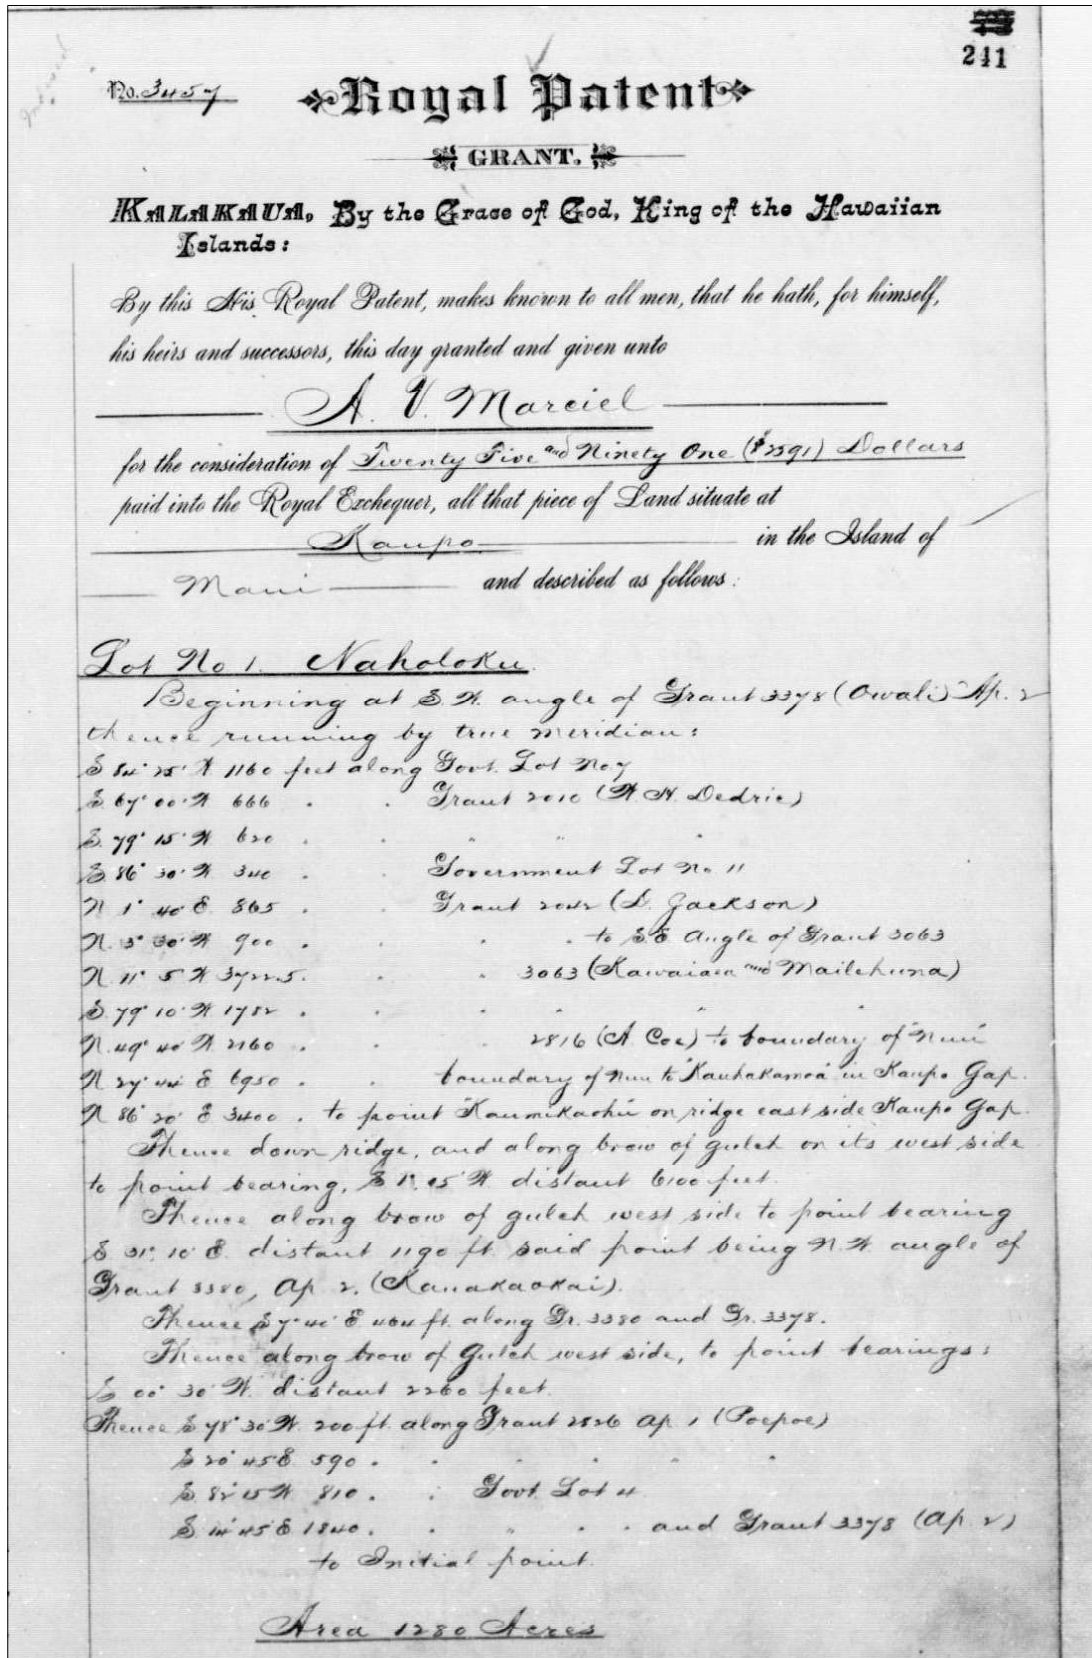 241
No. 3457
Royal Patent
GRANT.
KALAKAUA, By the Grace of God, King of the Hawaiian
Islands:
By this His Royal Patent, makes known to all men, that he hath, for himself,
his heirs and successors, this day granted and given unto
A. V. Marciel
for the consideration of Twenty Five and Ninety One ($2591) Dollars
paid into the Royal Exchequer, all that piece of Land situate at
Kaupo in the Island of
Maui and described as follows:
Lot No 1. Naholoku.
Beginning at S. W. angle of Grant 3378 (Owali) Ap. 2
thence running by true meridian:
S 84° 25' W 1160 feet along Govt. Lot No 7
S. 67° 00' W 666 " " Grant 2010 (W. H. Dedric)
S. 79° 15' W 620 " " " " "
S. 86° 30' W 340 " " Government Lot No 11
N 1° 40' E. 865 " " Grant 2042 (D. Jackson)
N. 3° 30' W 900 " " " " to S.E. Angle of Grant 3063
N. 11° 5' W 3722.5 " " " 3063 (Kawaiaea and Mailehuna)
S. 79° 10' W 1782 " " " " " "
N. 49° 40' W. 2160 " " " 2816 (A. Coe) to boundary of "Nuu"
N 27° 44' E 6950 " " boundary of Nuu to "Kauhakamoa" in Kaupo Gap.
N 86° 20' E 3400 " to point "Kaumikaohu" on ridge east side Kaupo Gap.
Thence down ridge, and along brow of gulch on its west side
to point bearing, S 1° 15' W. distant 6100 feet.
Thence along brow of gulch west side to point bearing
S 31° 10' E. distant 1190 ft. said point being N. W. angle of
Grant 3380, Ap. 2. (Kanakaokai).
Thence S 7° 40' E 464 ft. along Gr. 3380 and Gr. 3378.
Thence along brow of Gulch west side, to point bearings:
S 00° 30' W. distant 2260 feet.
Thence S 78° 30' W. 200 ft. along Grant 2826 Ap 1 (Poepoe)
S 20° 45' E. 590 " " " " "
S. 82° 15' W 810 " " Govt. Lot 4
S 14° 45' E 1840 " " " " " and Grant 3378 (Ap. 2)
to Initial point.
Area 1280 Acres